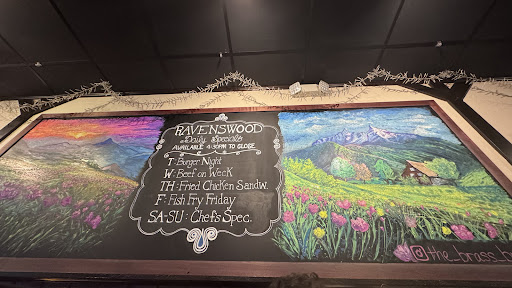 RAVENSWOOD
Daily Specials
AVAILABLE 4:30PM TO CLOSE
T: Burger Night
W: Beef on Weck
TH: Fried Chicken Sandw.
F: Fish Fry Friday
SA-SU: Chefs Spec.